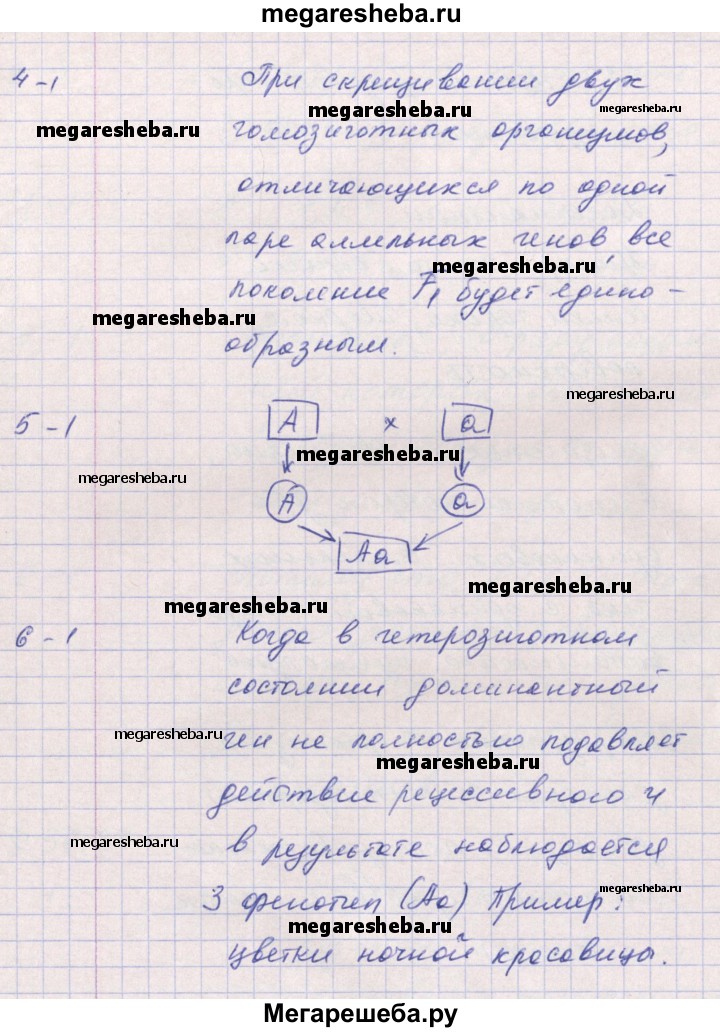 megaresheba.ru
4-1 При скрещивании двух
megaresheba.ru megaresheba.ru
megaresheba.ru гомозиготных организмов,
отличающихся по одной
паре аллельных генов, все
megaresheba.ru
поколение F1 будет едино-
megaresheba.ru
образным.
megaresheba.ru
5-1 A x a
megaresheba.ru
megaresheba.ru
A a
Aa
megaresheba.ru
megaresheba.ru
6-1 Когда в гетерозиготном
состоянии доминантный
megaresheba.ru ген не полностью подавляет
megaresheba.ru
действие рецессивного и
megaresheba.ru в результате наблюдается
megaresheba.ru
3 фенотип (Aa) Пример:
megaresheba.ru
цветки ночной красавицы.
Мегарешеба.ру